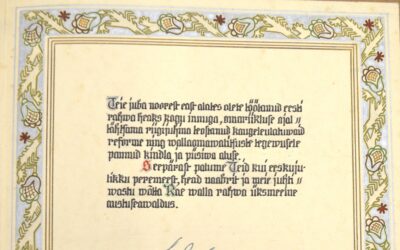 Teie juba noorest east alates olete töötanud eesti
rahwa heaks kogu innuga, omariikluse ajal
tähtsama riigijuhina teostanud kaugeleulatuwaid
reforme ning wallaomawalitsuste tegewusele
pannud kindla ja püsiwa aluse.
Seepärast palume Teid kui eeskuju-
likku peremeest, head naabrit ja meie juhti
wastu wõtta Rae walla rahwa üksmeelne
austuseawaldus.